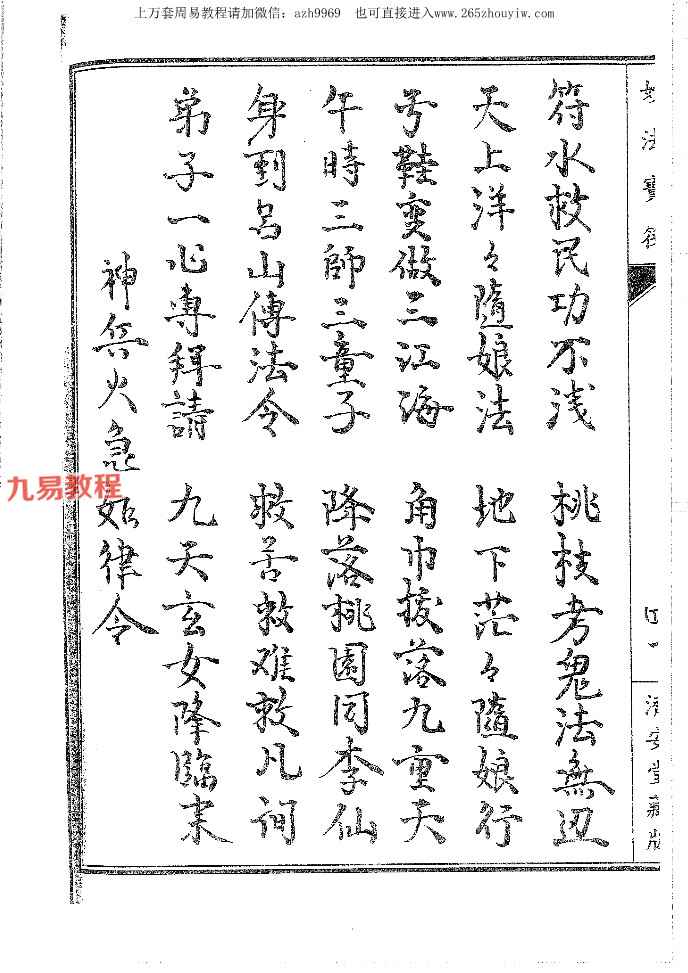 上万套周易教程请加微信：azh9969 也可直接进入www.265zhouyiw.com
法寶
符水救民功不浅 桃枝考鬼法無边
天上洋々隨娘法 地下茫々隨娘行
号鞋变做三江海 角巾拔落九重天
午時三師三童子 降落桃園同李仙
身到名山傳法令 救苦救难救凡间
弟子一心专拜請 九天玄女降臨来
神兵火急如律令
九易教程
安堂